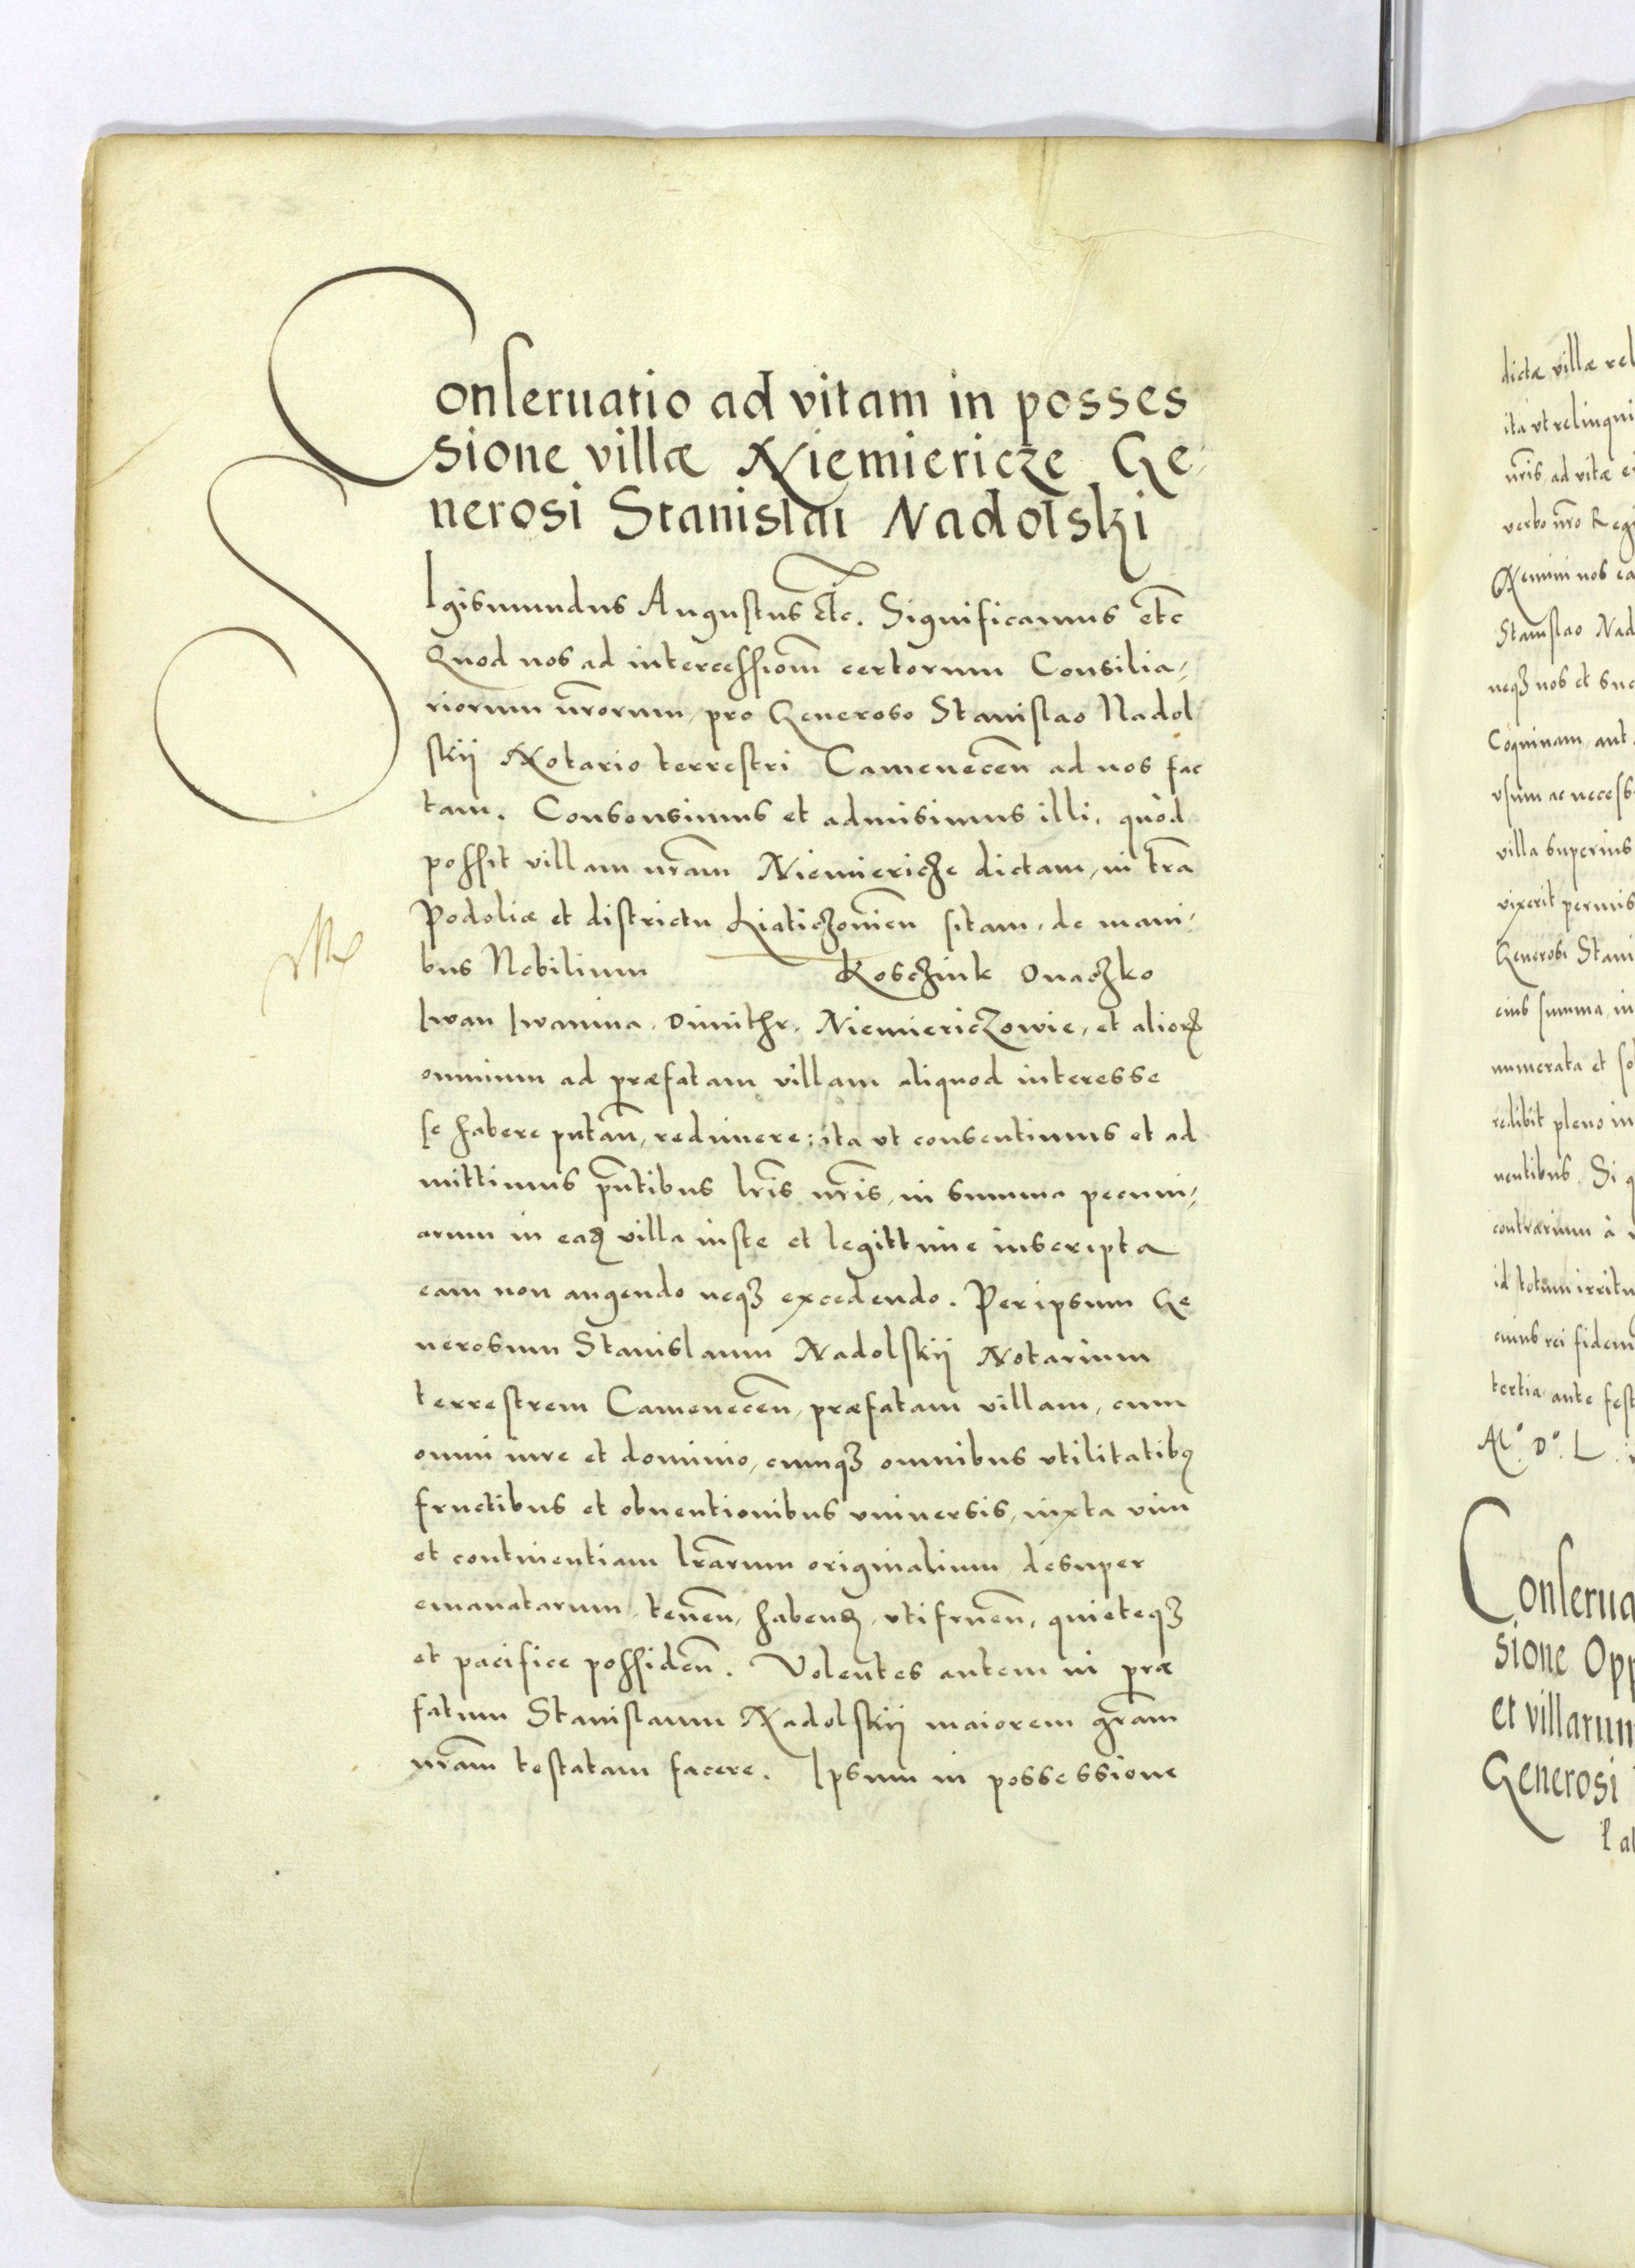 Conseruatio ad vitam in posses
sione villæ Niemiericze Ge-
nerosi Stanislai Nadolski
Sigismundus Augustus etc. Significamus etc
Quod nos ad intercessiom̄ certorum Consilia-
riorum nr̄orum, pro Generoso Stanislao Nadol
skij Notario terrestri Camenecen̄ ad nos fac
tam. Consensimus et admisimus illi, quòd
possit villam nr̄am Niemiericze dictam, in tr̄a
Podoliæ et districtu Liaticzouien̄ sitam, de mani-
bus Nobilium Koscziuk Onaczko
Iwan Iwanina, Dimithr, Niemiericzowie, et alioꝝ
omnium ad præfatam villam aliquod interesse
se habere putan̄, redimere: ita vt consentimus et ad
mittimus pn̄tibus lr̄is nr̄is, in summa pecuni-
arum in eaꝫ villa iuste et legittime inscripta
eam non augendo neqꝫ excedendo. Per ipsum Ge
nerosum Stanislaum Nadolskij Notarium
terrestrem Camenecen̄, præfatam villam, cum
omni iure et dominio, cumqꝫ omnibus vtilitatibꝰ
fructibus et obuentionibus vniuersis, iuxta vim
et continentiam lr̄arum originalium desuper
emanatarum, tenen̄, habenꝫ, vtifruen̄, quieteqꝫ
et pacifice possiden̄. Volentes autem in præ
fatum Stanislaum Nadolskij maiorem gr̄am
nr̄am testatam facere. Ipsum in possessione
dictæ villæ rel
ita vt relinqui
nr̄is, ad vitæ ei
verbo nr̄o Regi
Nemini nos ea
Stanislao Nad
neqꝫ nos et suc
Coquinam, aut
vsum ac necess
villa superius
vixerit permis
Generosi Stani
eius summa, in
numerata et so
redibit pleno iu
nentibus. Si q
contrarium à
id totum irritu
cuius rei fidem
tertia ante fest
Mº. Dº. L.
Conserua
sione Opp
et villarum
Generosi